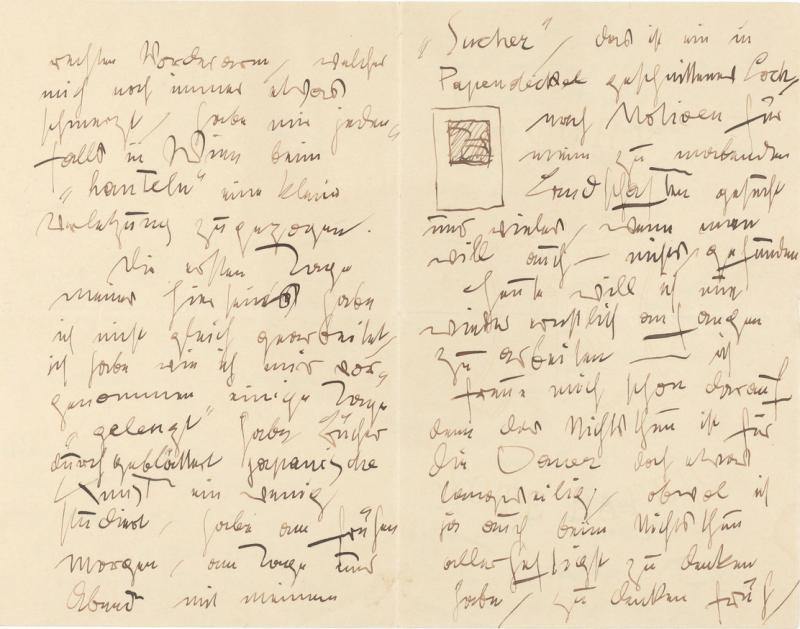 rechten Vorderarm, welcher
mich noch immer etwas
schmerzt, habe mir jeden-
falls in Wien beim
„hanteln“ eine kleine
Verletzung zugezogen.
Die ersten Tage
meines Hierseins habe
ich nicht gleich gearbeitet,
ich habe wie ich mir vor-
genommen einige Tage
„gelenzt“ habe Bücher
durchgeblättert japanische
Kunst ein wenig
studiert, habe am frühen
Morgen, am Tage und
Abend mit meinem
„Sucher“, das ist ein in
Papendeckel geschnittenes Loch,
nach Motiven für
meine zu malenden
Landschaften gesucht
und vieles, wenn man
will auch — nichts, gefunden
Heute will ich nun
wieder ernstlich anfangen
zu arbeiten — ich
freue mich schon darauf
denn das Nichtsthun ist für
die Dauer doch etwas
langweilig, obwol ich
ja auch beim Nichtsthun
allerheftigst zu denken
habe, zu denken früh,